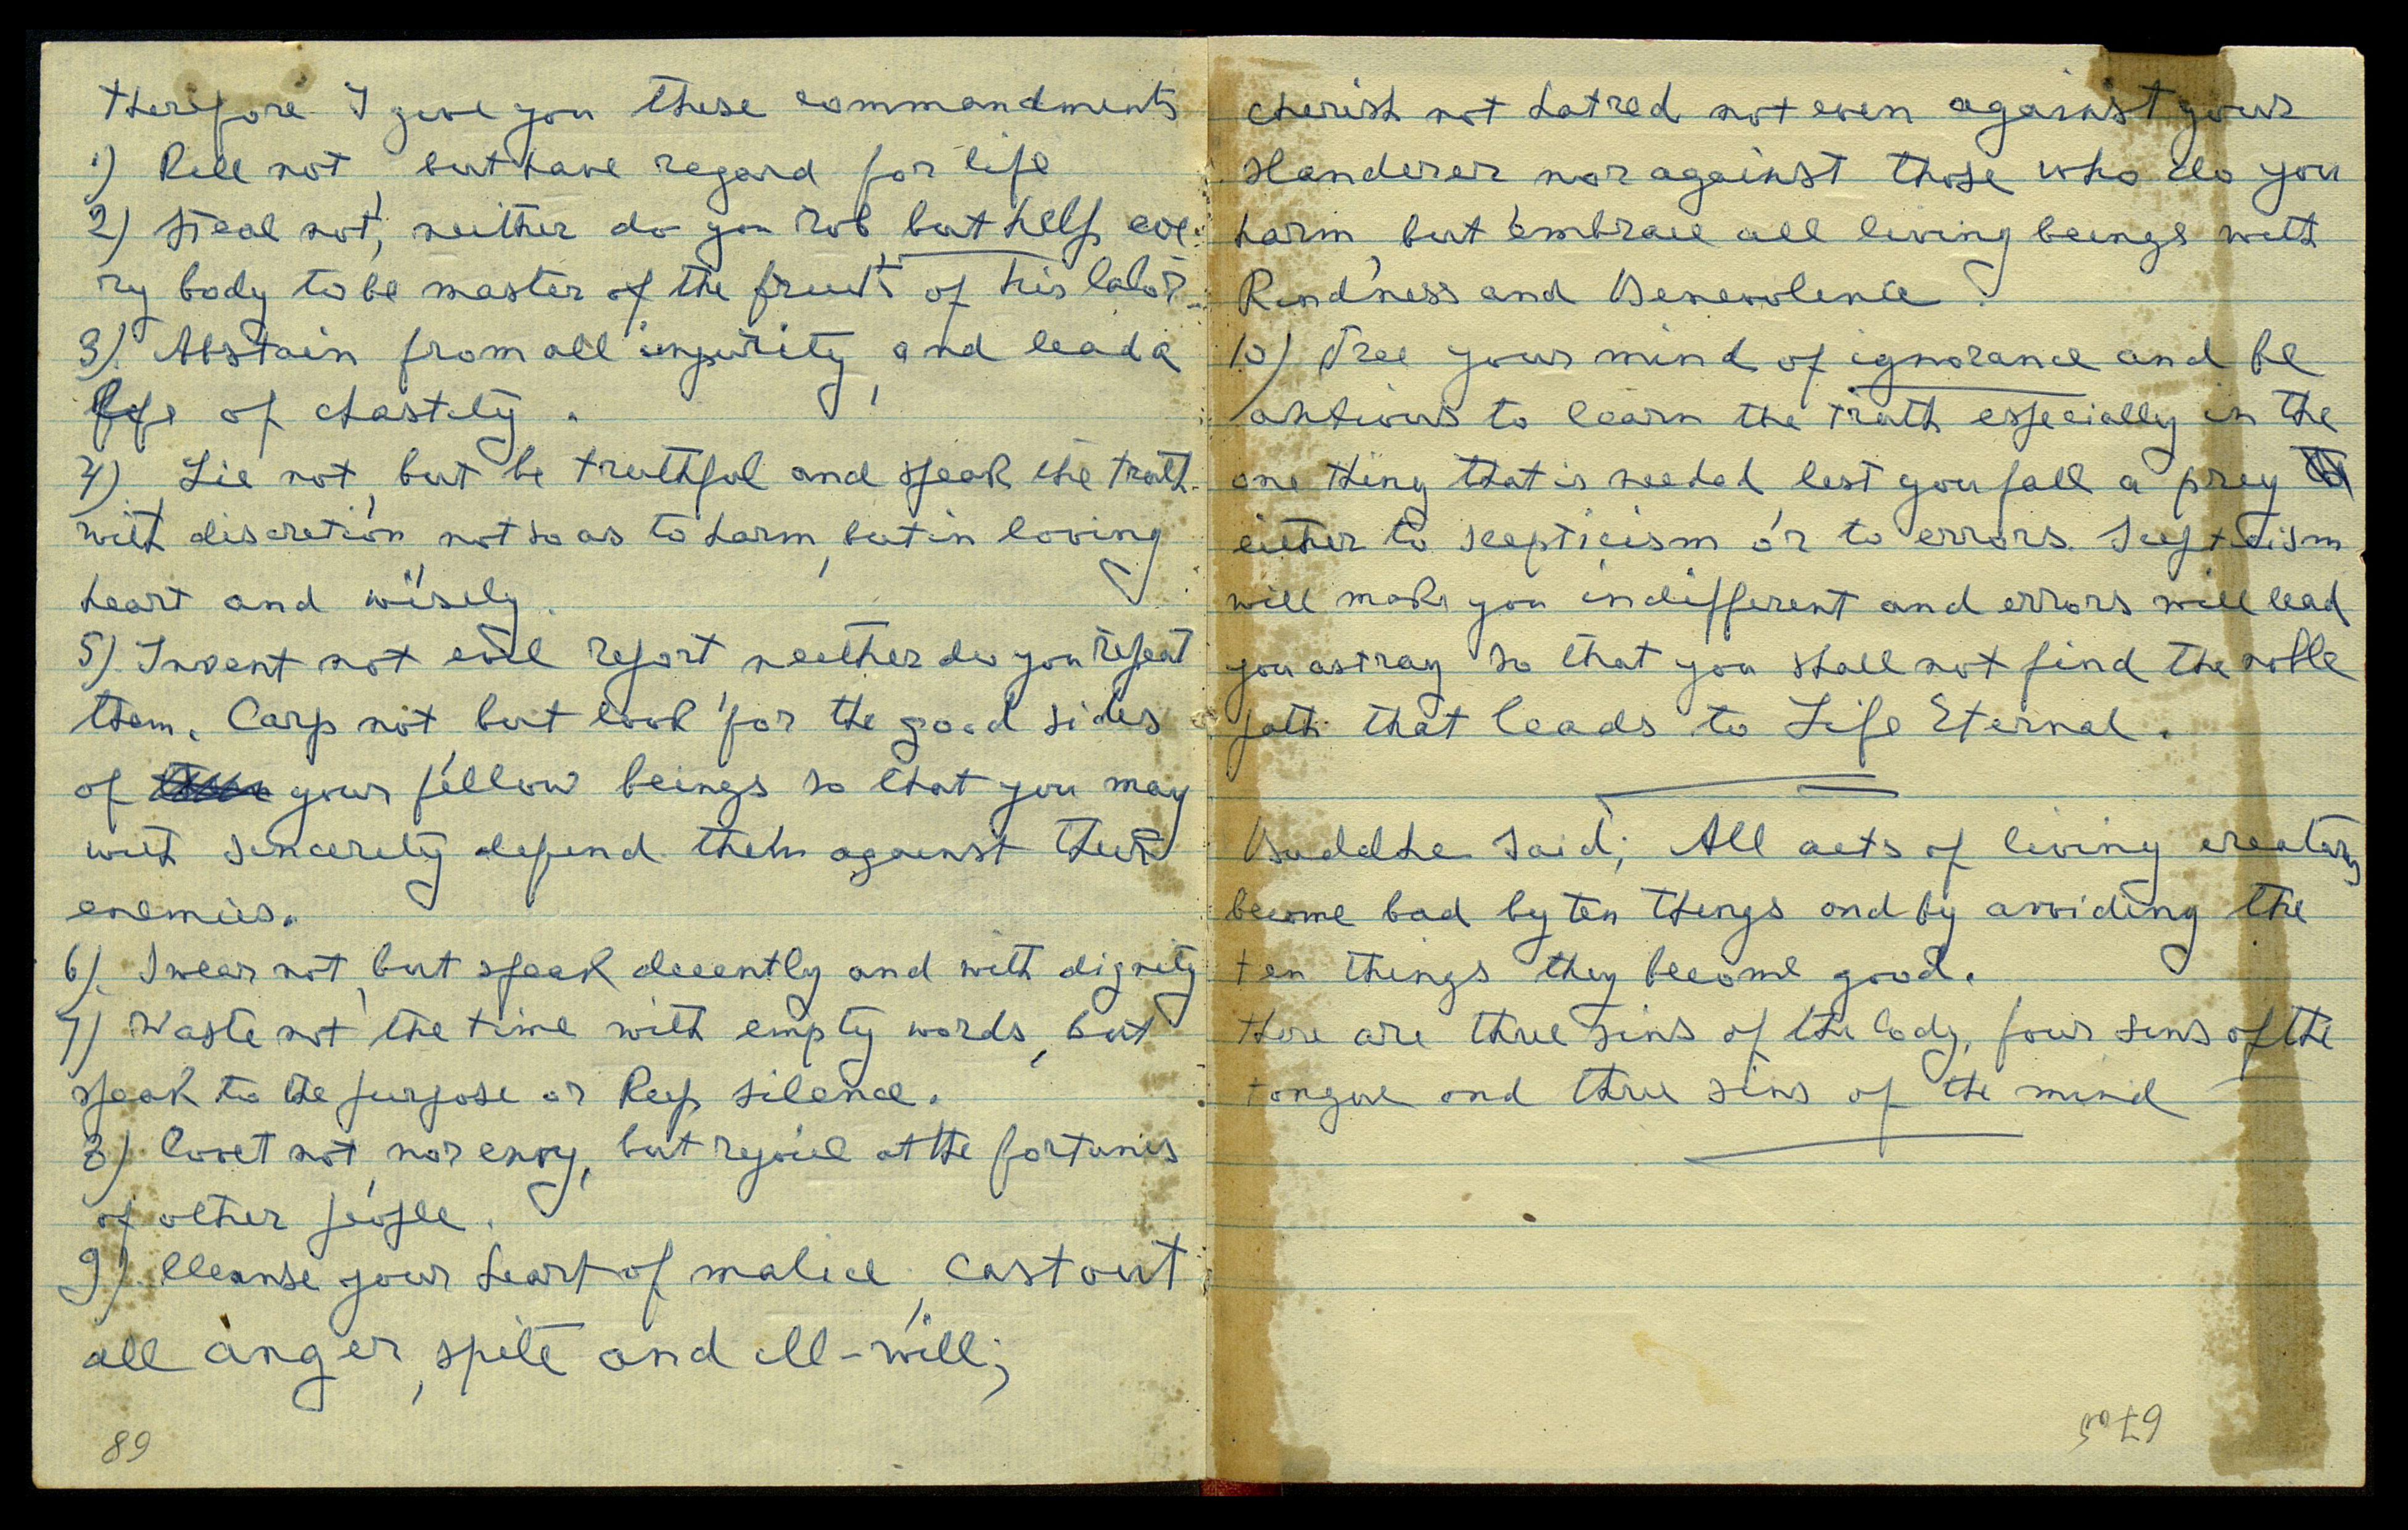 therefore I give you these commandments
1) Kill not, but have regard for life
2) Steal not, neither do you rob but help eve-
ry body to be master of the fruits of his labor-
3). Abstain from all impurity, and lead a
life of chastity.
4) Lie not, but be truthful and speak the truth
with discretion, not so as to harm, but in loving
heart and wisely.
5). Invent not evil report neither do you repeat
them. Carp not but look for the good sides
of your fellow beings so that you may
with sincerity defend them against their
enemies.
6). Swear not, but speak decently and with dignity
7) Waste not the time with empty words, but
speak to the purpose or keep silence.
8) Covet not, nor envy, but rejoice at the fortunes
of other people.
9). Cleanse your heart of malice, cast out
all anger, spite and ill-will;
89
cherish not hatred not even against your
slanderer nor against those who do you
harm, but embrace all living beings with
Kindness and Benevolence.
10) Free your mind of ignorance and be
anxious to learn the truth especially in the
one thing that is needed lest you fall a prey
either to scepticism or to errors. Scepticism
will make you indifferent and errors will lead
you astray so that you shall not find the noble
path that leads to Life Eternal.
Buddha said; All acts of living creatures
become bad by ten things and by avoiding the
ten things they become good.
there are three sins of the body, four sins of the
tongue and three sins of the mind